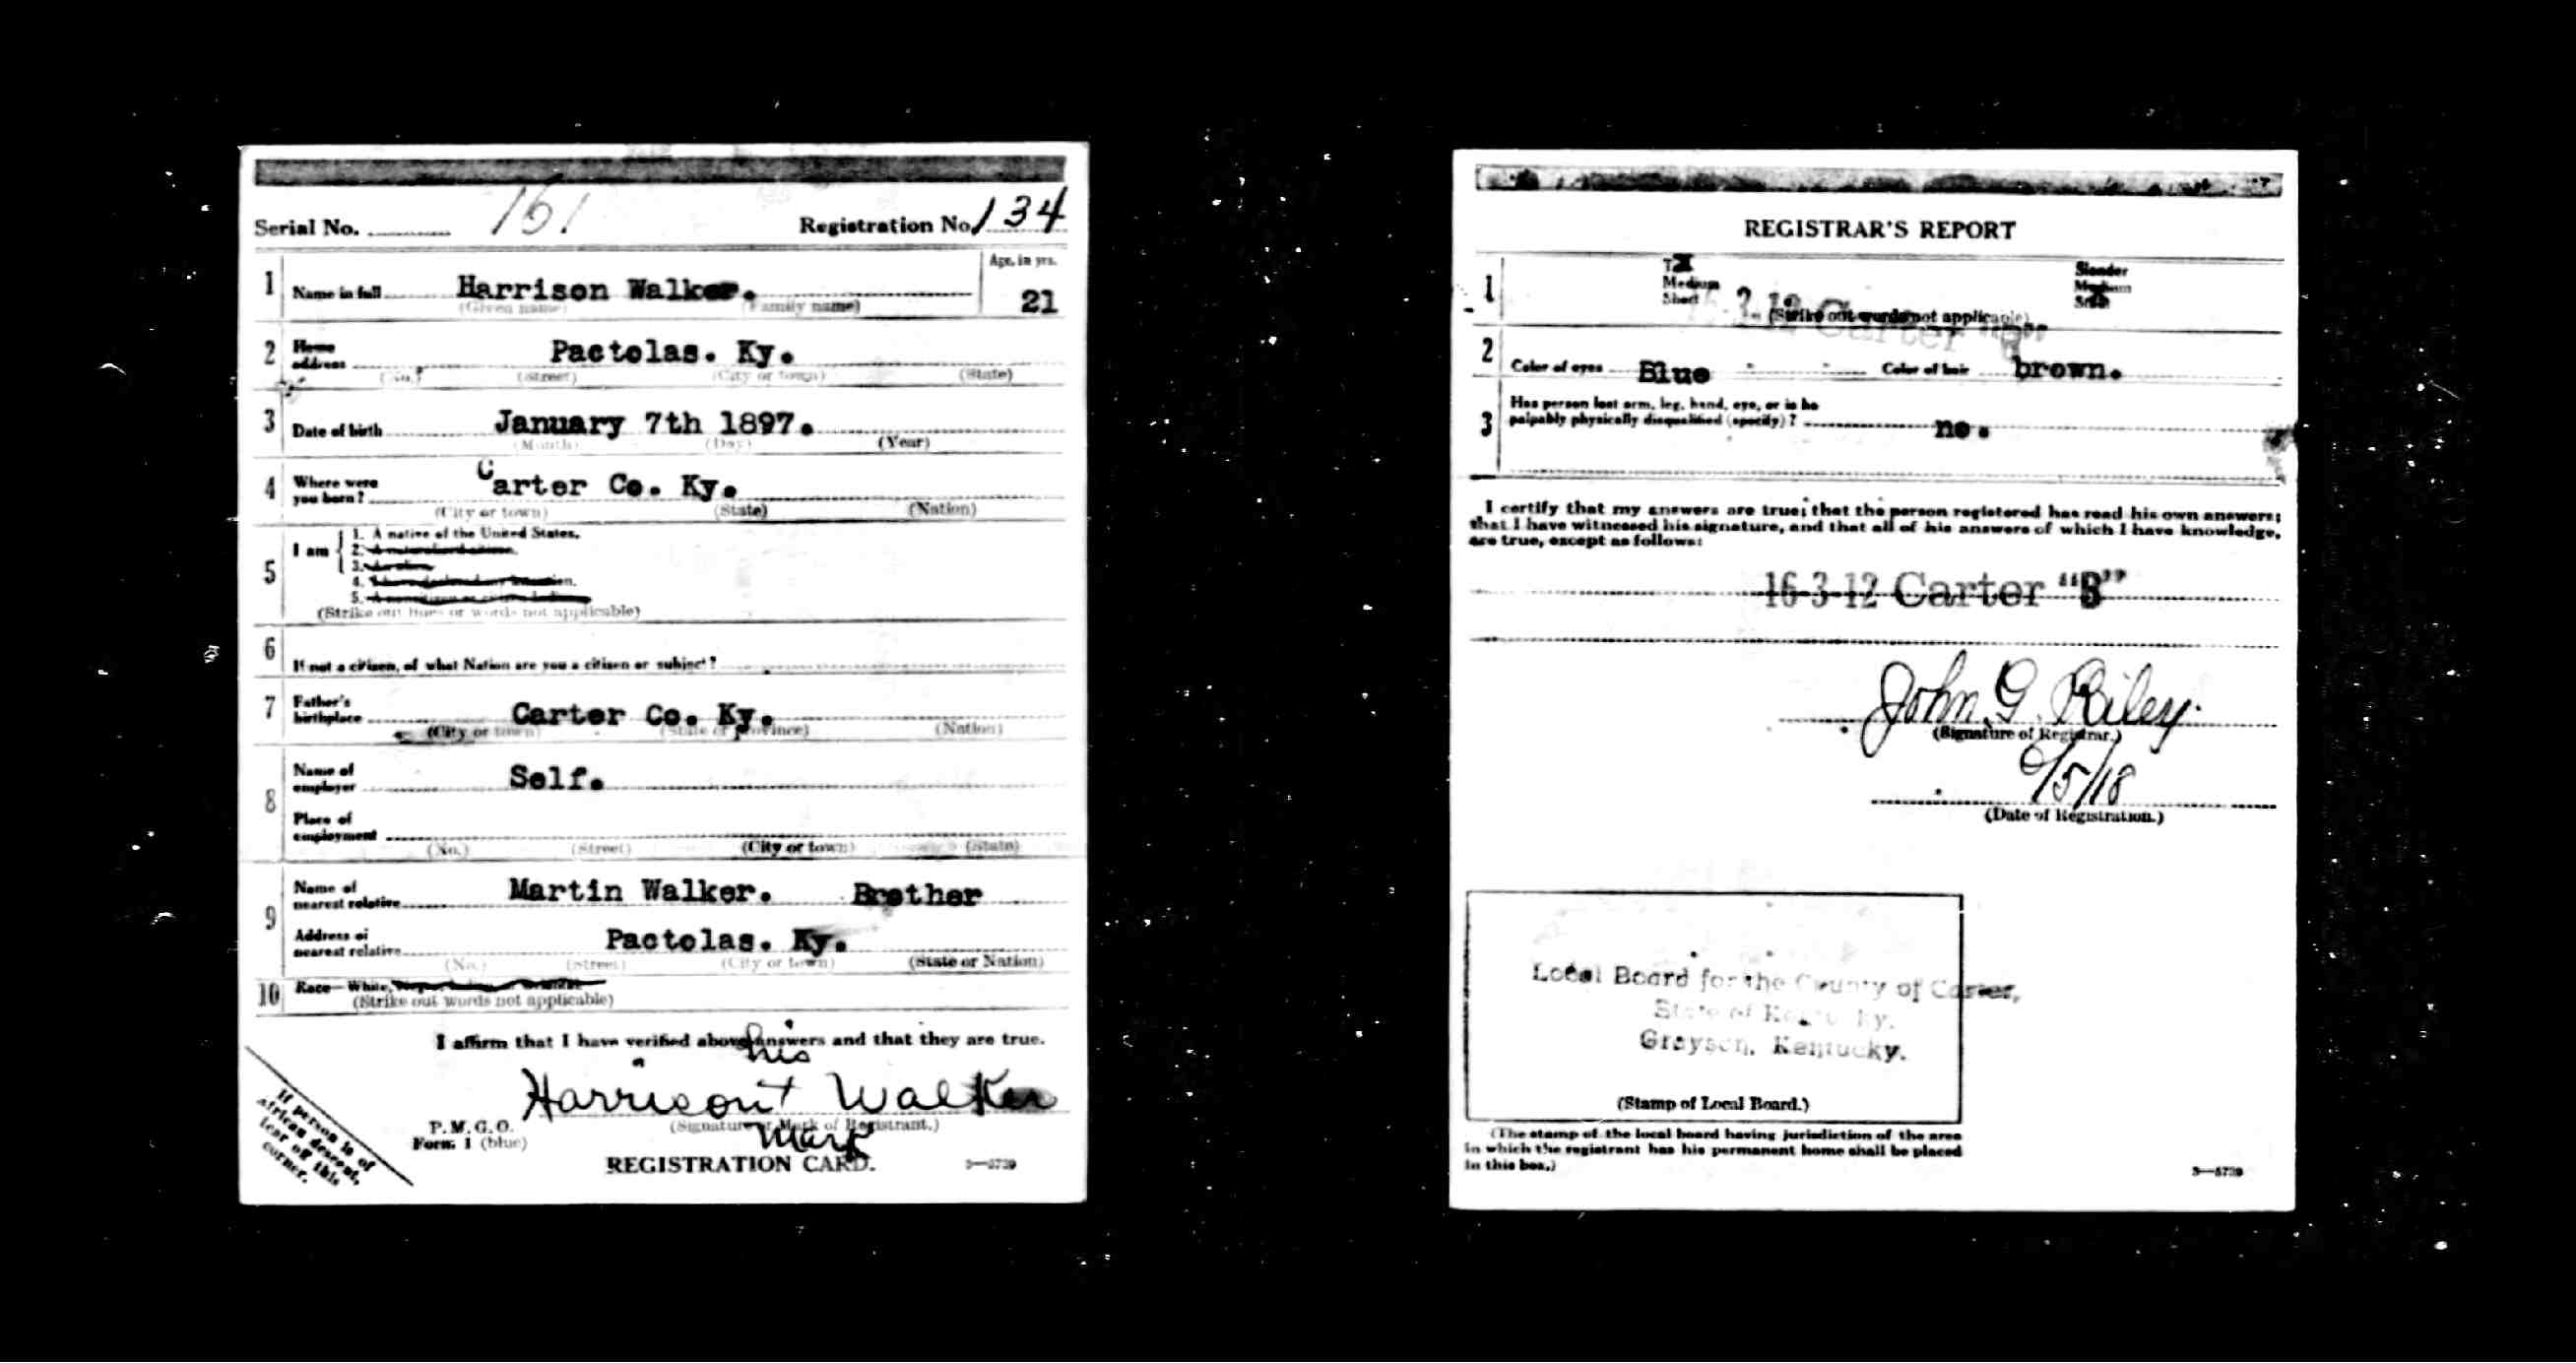 Serial No. 151 Registration No. 134
1 Name in full Harrison Walker. Age, in yrs.
(Given name) (Family name) 21
2 Home address Pactolas. Ky.
(No.) (Street) (City or town) (State)
3 Date of birth January 7th 1897.
(Month) (Day) (Year)
4 Where were you born? Carter Co. Ky.
(City or town) (State) (Nation)
5 I am 1. A native of the United States.
2. A naturalized citizen.
3. An alien.
4.
5.
(Strike out lines or words not applicable)
6 If not a citizen, of what Nation are you a citizen or subject?
7 Father's birthplace Carter Co. Ky.
(City or town) (State or province) (Nation)
8 Name of employer Self.
Place of employment
(No.) (Street) (City or town) (State)
9 Name of nearest relative Martin Walker. Brother
Address of nearest relative Pactolas. Ky.
(No.) (Street) (City or town) (State or Nation)
10 Race—White,
(Strike out words not applicable)
I affirm that I have verified above answers and that they are true.
his
Harrison + Walker
P. M. G. O. (Signature or Mark of Registrant.)
Form 1 (blue) Mark
REGISTRATION CARD. 3—5739
If person is of
African descent,
tear off this
corner.
REGISTRAR'S REPORT
1 Tall Slender
Medium Medium
Short Stout
(Strike out words not applicable)
16-3-12 Carter "B"
2 Color of eyes Blue Color of hair brown.
3 Has person lost arm, leg, hand, eye, or is he
palpably physically disqualified (specify)? no.
I certify that my answers are true; that the person registered has read his own answers;
that I have witnessed his signature, and that all of his answers of which I have knowledge,
are true, except as follows:
16-3-12 Carter "B"
John G. Riley.
(Signature of Registrar.)
6/5/18
(Date of Registration.)
Local Board for the County of Carter,
State of Kentucky.
Grayson, Kentucky.
(Stamp of Local Board.)
(The stamp of the local board having jurisdiction of the area
in which the registrant has his permanent home shall be placed
in this box.)
3—5739